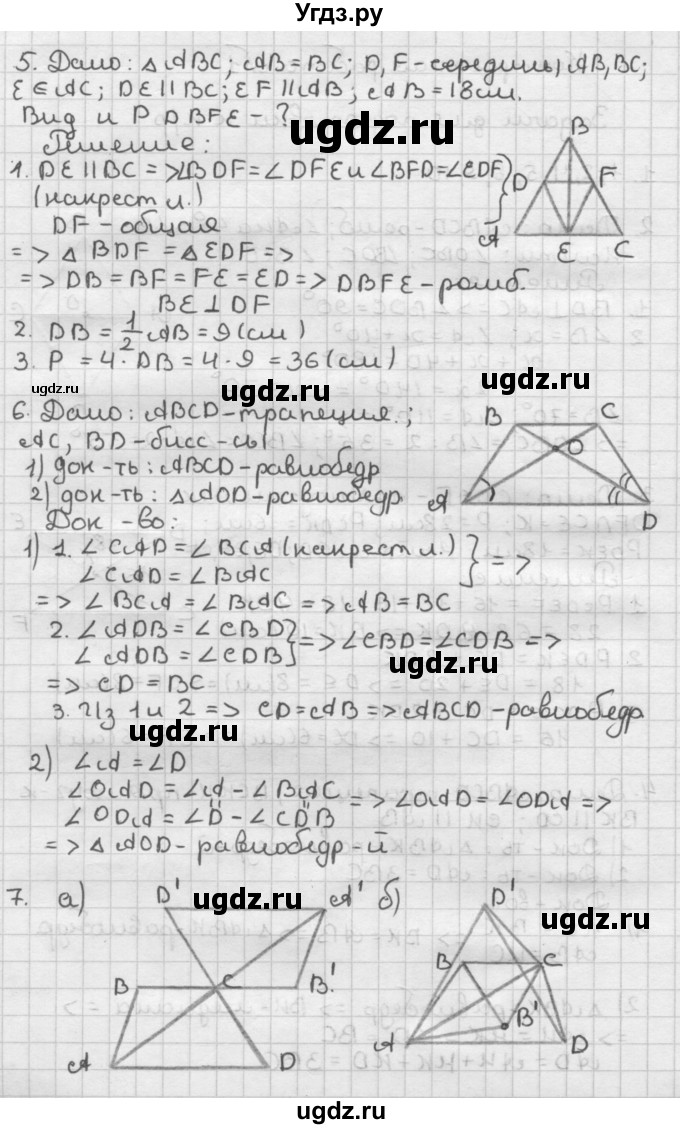 Угдз.ру
5. Дано: △ABC; AB=BC; D, F-середины AB, BC;
E∈AC; DE∥BC; EF∥AB; AB=18см.
Вид и P DBFE-?
ugdz.ru
Решение:
1. DE∥BC =>∠BDF=∠DFE и ∠BFD=∠EDF}
(накрест л.)
DF-общая
=> △BDF=△EDF =>
=> DB=BF=FE=ED=> DBFE-ромб.
BE⊥DF
2. DB=1/2 AB=9(см)
3. P=4·DB=4·9=36(см)
B
D
F
A
E
C
ugdz.ru
ugdz.ru
ugdz.ru
6. Дано: ABCD-трапеция;
AC, BD-бисс-сы
1) док-ть: ABCD-равнобедр
2) док-ть: △AOD-равнобедр
Док-во:
B
C
O
A
D
1) 1. ∠CAD=∠BCA (накрест л.)
∠CAD=∠BAC } =>
=> ∠BCA=∠BAC => AB=BC
2. ∠ADB=∠CBD
∠ADB=∠CDB } => ∠CBD=∠CDB =>
=> CD=BC
3. Из 1 и 2 => CD=AB => ABCD-равнобедр
ugdz.ru
ugdz.ru
2) ∠A=∠D
∠OAD=∠A-∠BAC
∠ODA=∠D-∠CDB => ∠OAD=∠ODA =>
=> △AOD-равнобедр-й
7. а)
D'
A'
B
C
B'
A
D
ugdz.ru
б)
D'
B
C
B'
A
D
ugdz.ru
ugdz.ru
ugdz.ru